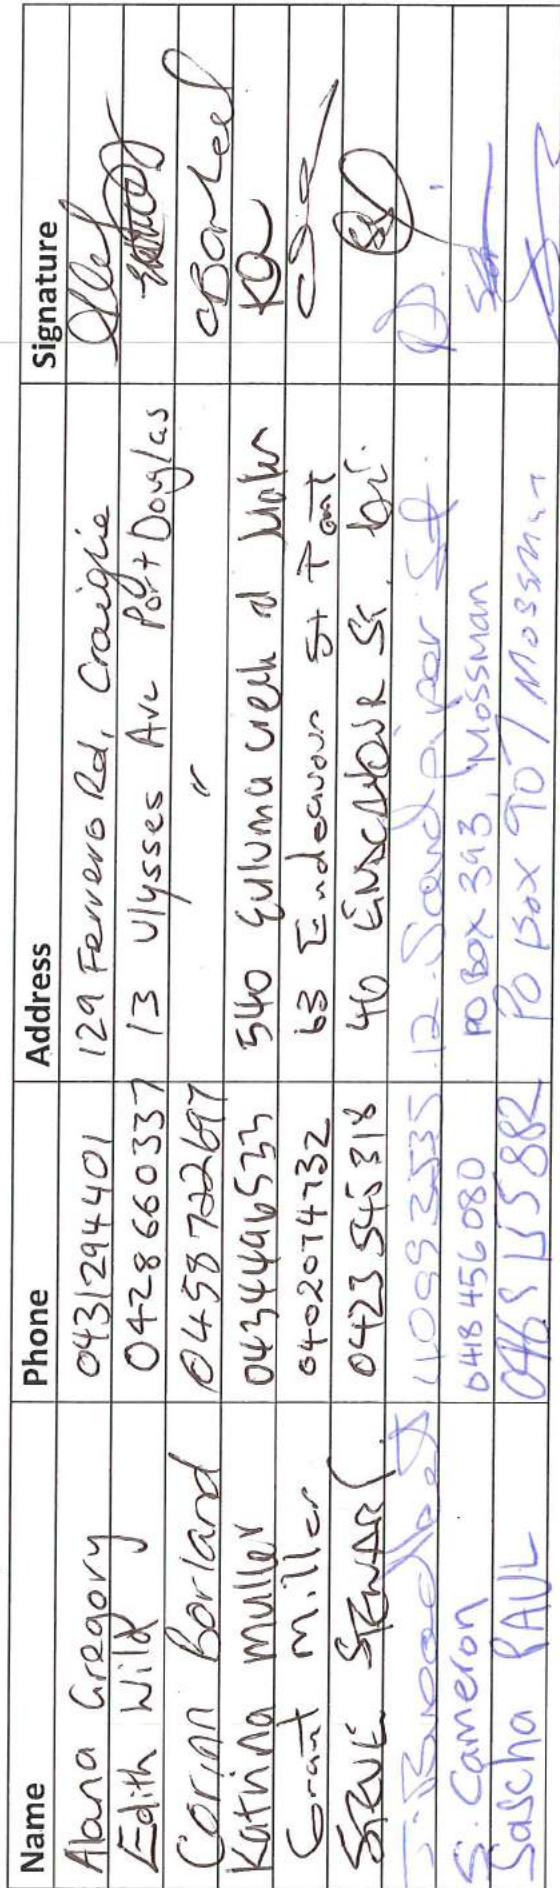 Name Phone Address Signature
Alana Gregory 0431294401 129 Ferrero Rd, Craiglie
Edith Wild 0428660337 13 Ulysses Ave Port Douglas
Corinn Borland 0458722697 "
Katrina Muller 0434496533 540 Creek rd
Grant Miller 0402074732 63 Endeavour St
STEVE STEWART 0423 545318 40 St.
40993535 12. Sandpiper St.
S. Cameron 0418 456080 PO BOX 393, Mossman
Sascha PAUL PO Box 907 Mossman